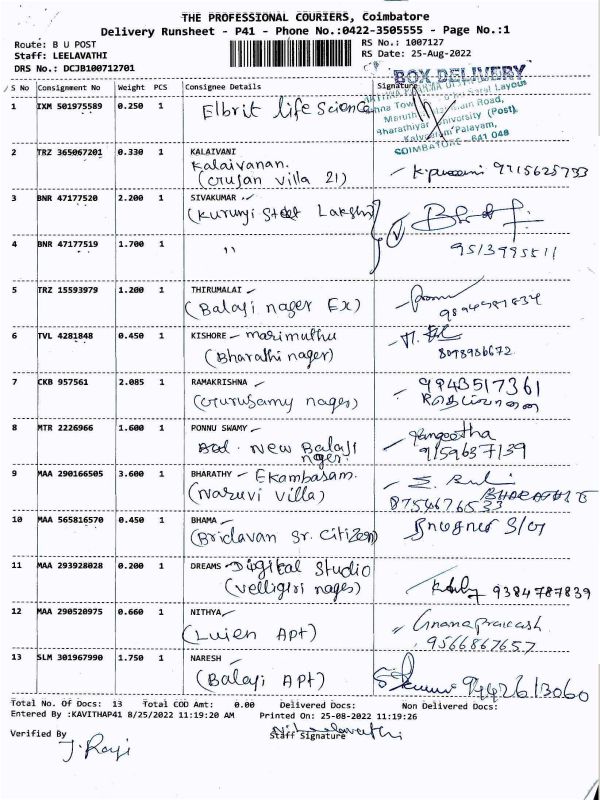 THE PROFESSIONAL COURIERS, Coimbatore
Delivery Runsheet - P41 - Phone No.:0422-3505555 - Page No.:1
Route: B U POST
RS No.: 1007127
Staff: LEELAVATHI
RS Date: 25-Aug-2022
DRS No.: DCJB100712701
BOX DELIVERY
S No Consignment No Weight PCS Consignee Details Signature
1 IXM 501975589 0.250 1 Elbrit life Science
Bharathiyar University (Post),
Kalveeram Palayam,
COIMBATORE - 641 046
2 TRZ 365067201 0.330 1 KALAIVANI
Kalaivanan.
(Crusan villa 21)
9715625733
3 BNR 47177520 2.200 1 SIVAKUMAR
(Kurunji Street Lakshmi)
4 BNR 47177519 1.700 1 "
9513995511
5 TRZ 15593979 1.200 1 THIRUMALAI
(Balaji nager Ex)
6 TVL 4281848 0.450 1 KISHORE - marimuthu
(Bharathi nager)
8098986672
7 CKB 957561 2.085 1 RAMAKRISHNA
(Gurusamy nager)
9943517361
8 MTR 2226966 1.600 1 PONNU SWAMY
New Balaji
nager
Sangeetha
9159637139
9 MAA 290166505 3.600 1 BHARATHY - Ekambaram.
(Naruvi Villa)
8754676533
10 MAA 565816570 0.450 1 BHAMA
(Bridavan Sr. Citizen)
11 MAA 293928028 0.200 1 DREAMS Digital Studio
(Velligiri nager)
9384787839
12 MAA 290520975 0.660 1 NITHYA
(Luien Apt)
Gnanaprakash
9566867657
13 SLM 301967990 1.750 1 NARESH
(Balaji APt)
9442613060
Total No. Of Docs: 13 Total COD Amt: 0.00 Delivered Docs: Non Delivered Docs:
Entered By :KAVITHAP41 8/25/2022 11:19:20 AM Printed On: 25-08-2022 11:19:26
Verified By
Staff Signature